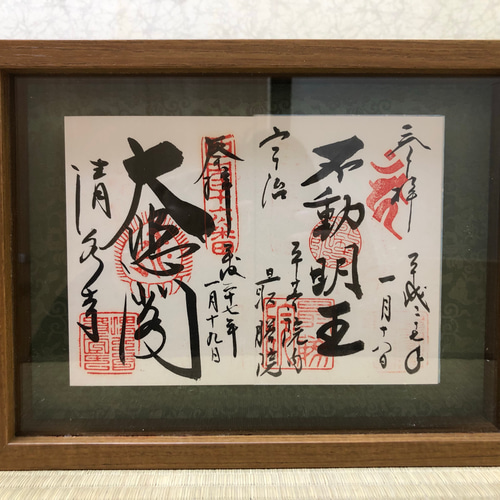 奉拝
平成二十七年
一月十八日
不動明王
平等院内
宇治
最勝院
奉拝
平成二十七年
一月十九日
大悲閣
清水寺